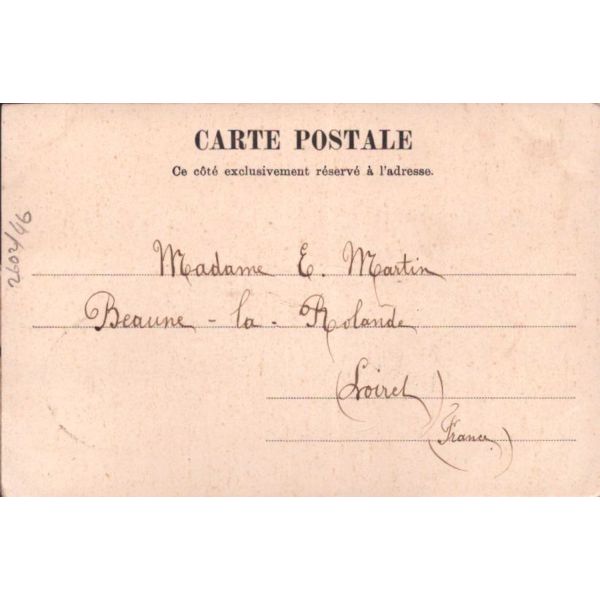 CARTE POSTALE
Ce côté exclusivement réservé à l'adresse.
Madame E. Martin
Beaune - la - Rolande
(Loiret)
(France)
2602/46